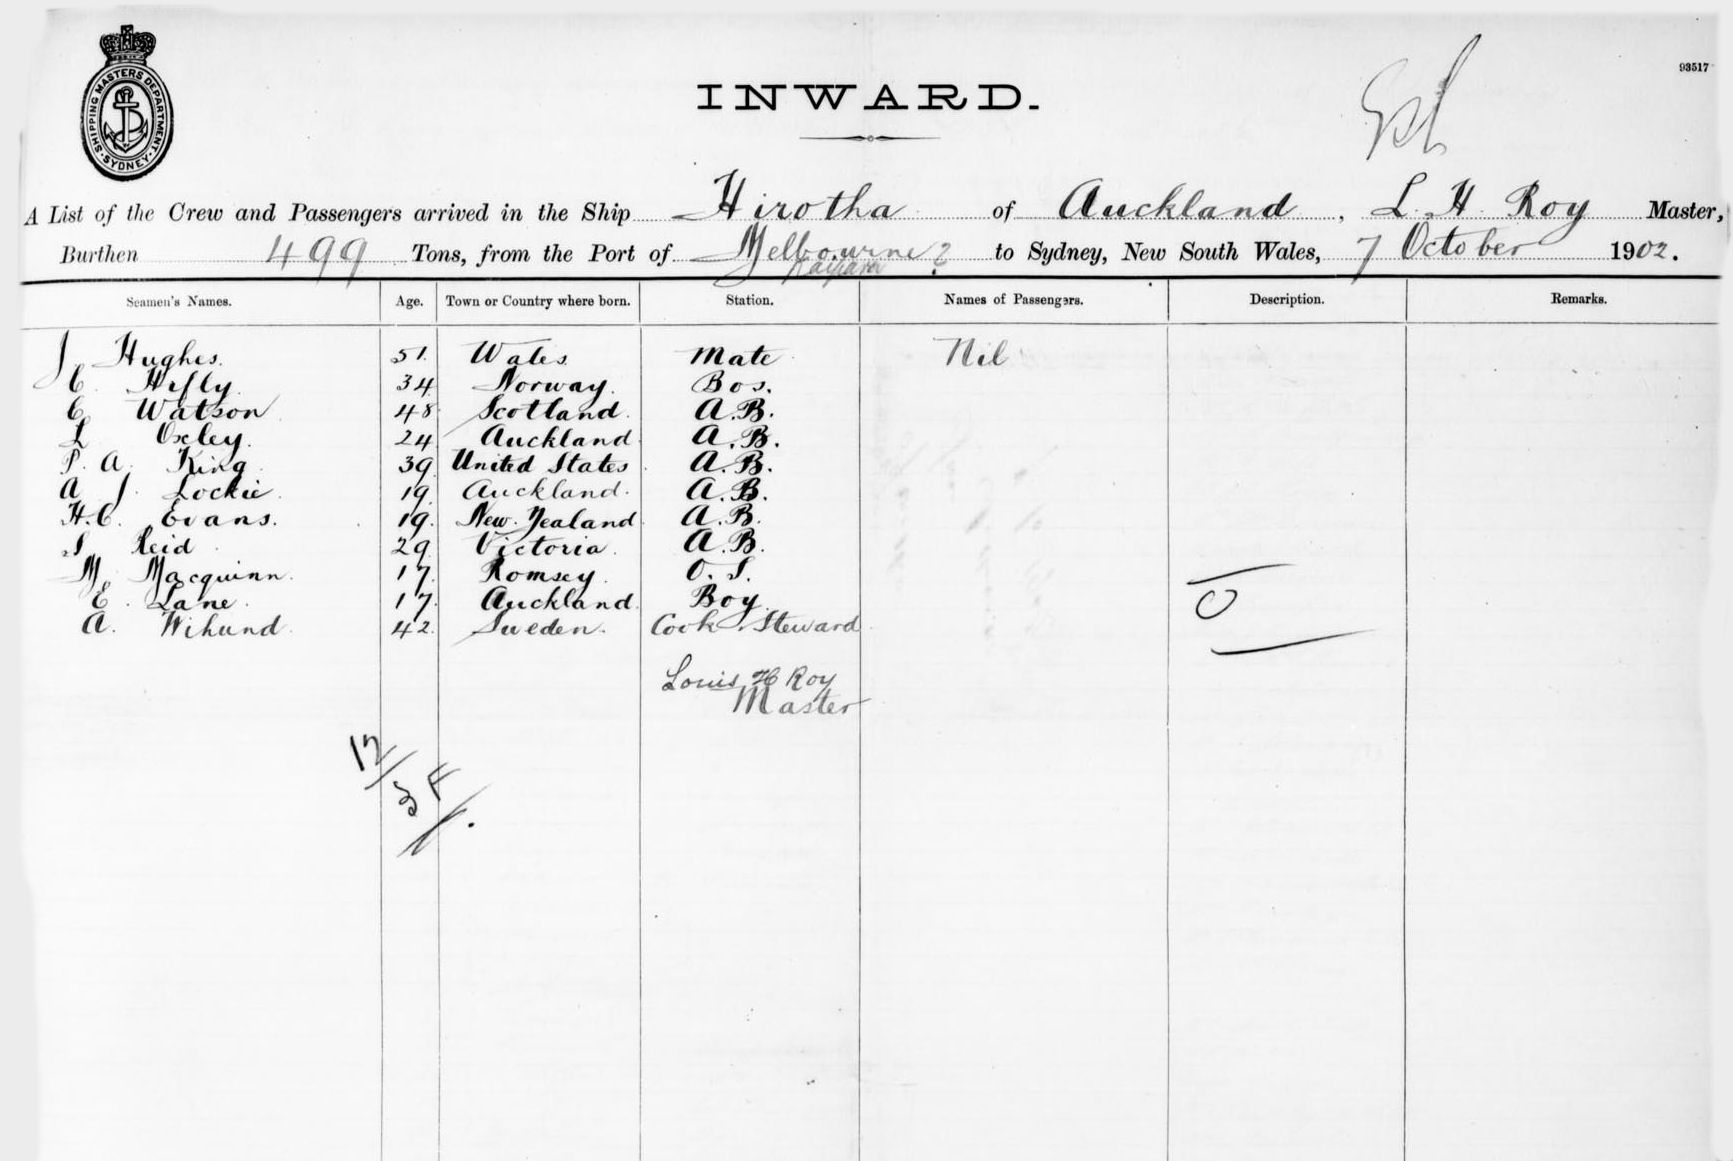 SHIPPING MASTERS DEPARTMENT. SYDNEY.
93517
INWARD.
A List of the Crew and Passengers arrived in the Ship Hirotha of Auckland, L. H. Roy Master,
Burthen 499 Tons, from the Port of Melbourne ? to Sydney, New South Wales, 7 October 1902.
Kaipara
Seamen's Names. Age. Town or Country where born. Station. Names of Passengers. Description. Remarks.
J Hughes. 51. Wales Mate Nil
C. Hefly. 34 Norway. Bos.
C Watson 48 Scotland. A.B.
L Oxley. 24 Auckland A.B.
P. A. King 39 United States A.B.
A J. Lockie. 19 Auckland. A.B.
H.C. Evans. 19. New Zealand A.B.
S Reid 29 Victoria. A.B.
M. Macquinn. 17. Romsey. O.S.
E. Lane. 17 Auckland. Boy
A. Wihund 42. Sweden. Cook Steward
Louis H Roy
Master
12/